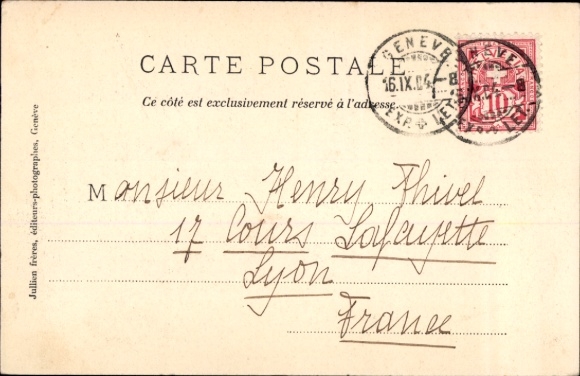 CARTE POSTALE
Ce côté est exclusivement réservé à l'adresse
GENÈVE
16.IX.04
EXP. LET
10
Monsieur Henry Thivel
17 Cours Lafayette
Lyon
France
Jullien frères, éditeurs-photographes, Genève